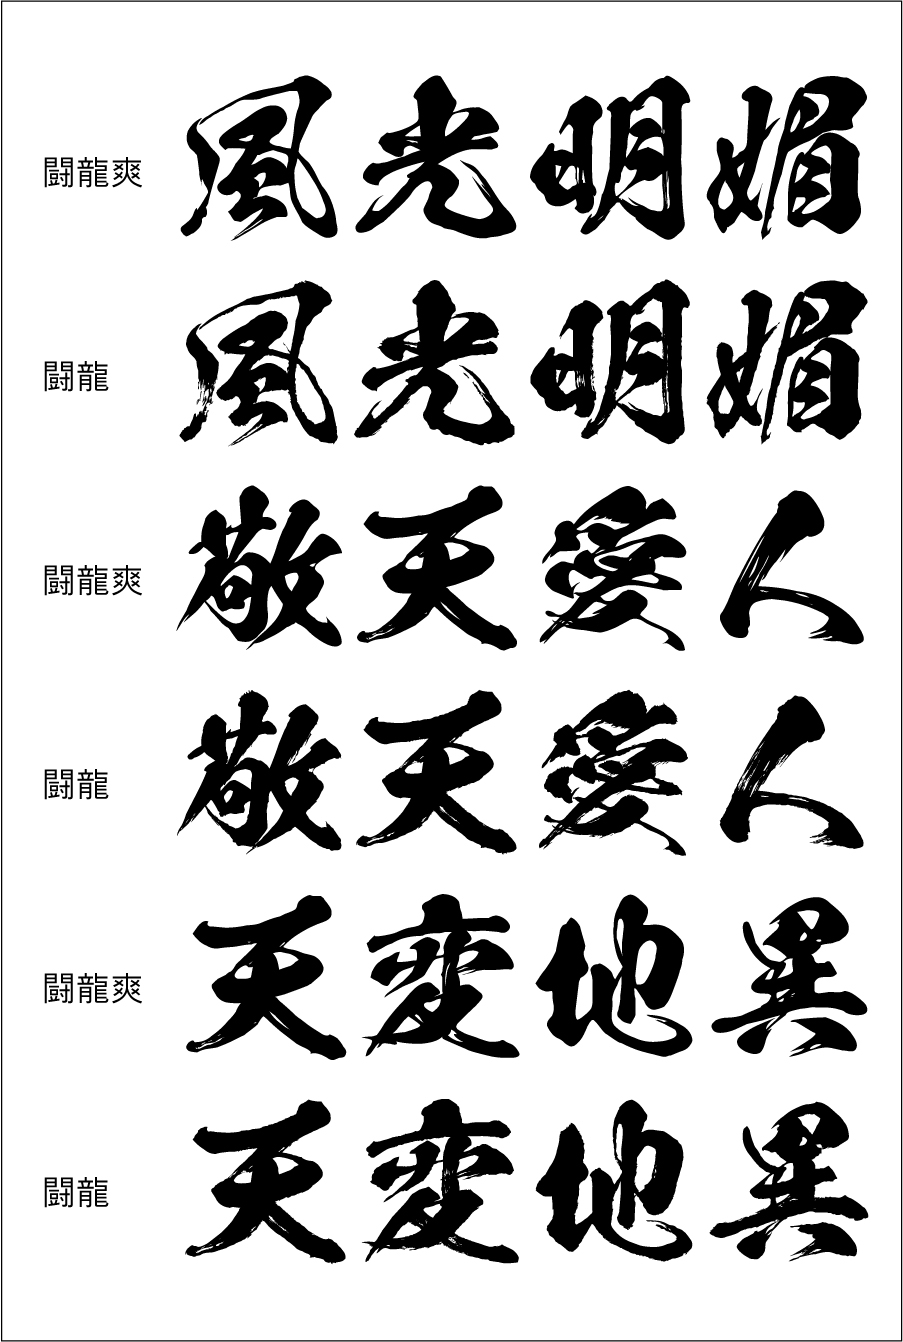 闘龍爽 風光明媚
闘龍 風光明媚
闘龍爽 敬天愛人
闘龍 敬天愛人
闘龍爽 天変地異
闘龍 天変地異